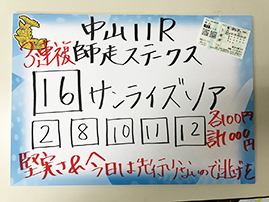 中山11R
3連複 師走ステークス
16 サンライズソア
2 8 10 11 12 各100円
計1000円
堅実さ 今日は先行 ないので逃げを